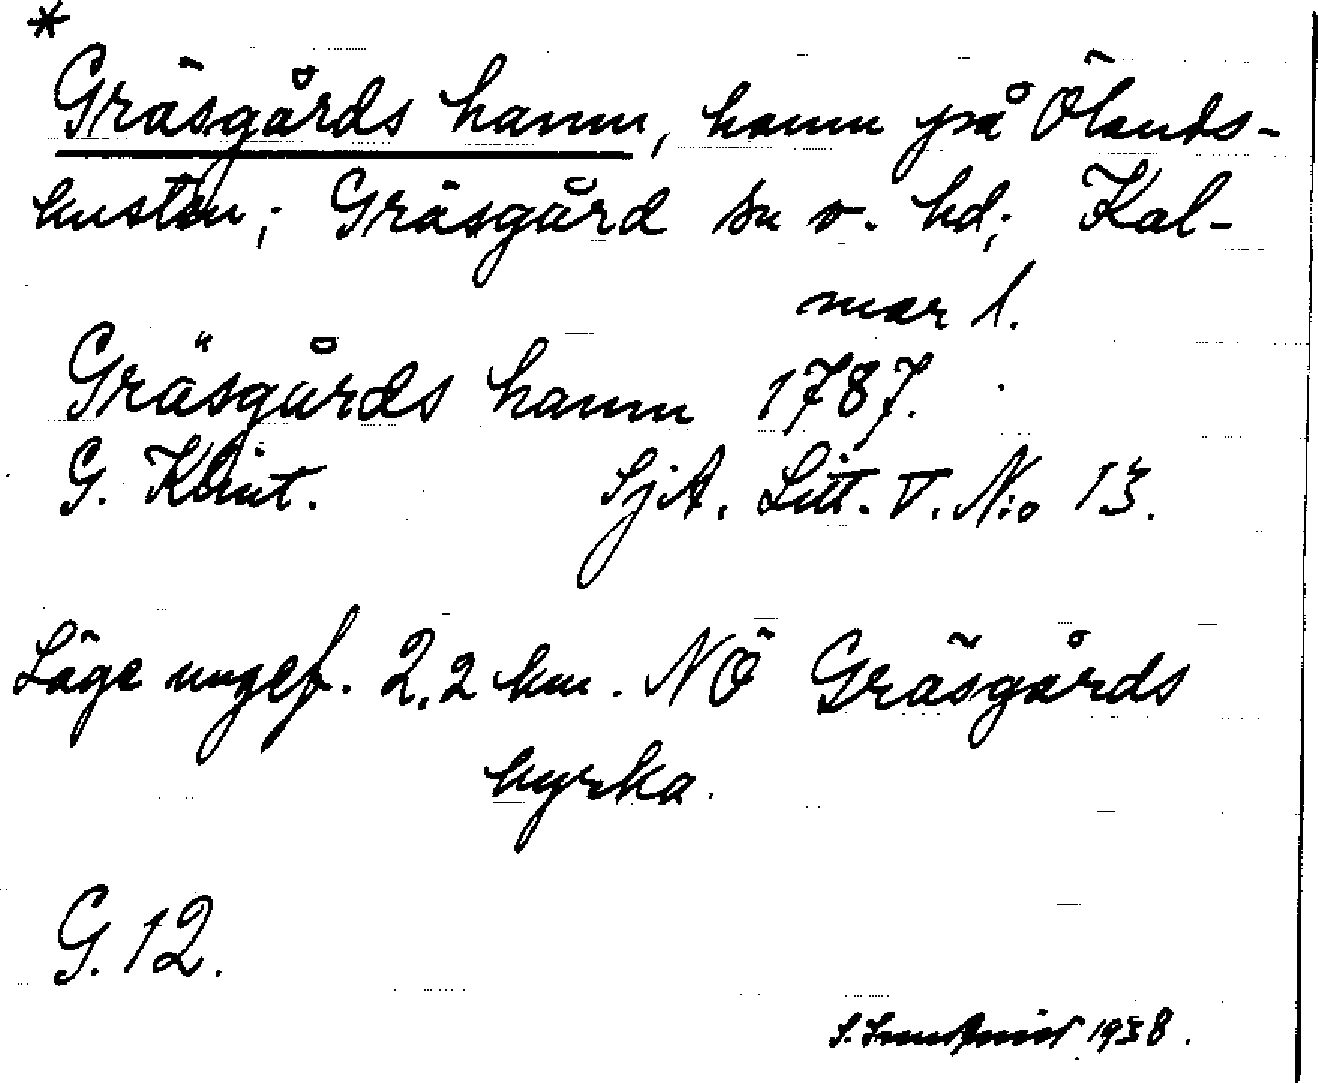 *
Gräsgårds hamn, hamn på Ölands-
kusten; Gräsgård sn o. hd; Kal-
mar l.
Gräsgårds hamn 1787.
G. Klint. SjA. Litt. V. N:o 13.
Läge ungef. 2,2 km. NÖ Gräsgårds
kyrka.
G. 12.
1938.